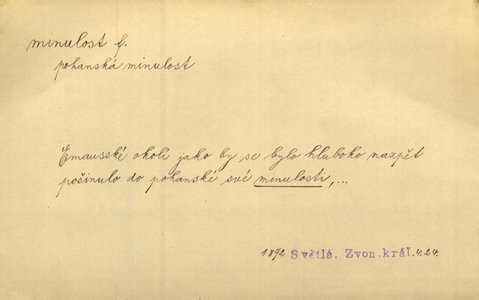 minulost f.
pohanská minulost
Emausské okolí jako by se bylo hluboko nazpět
pošinulo do pohanské své minulosti,...
1892 Světlá. Zvon. král. 4.24.